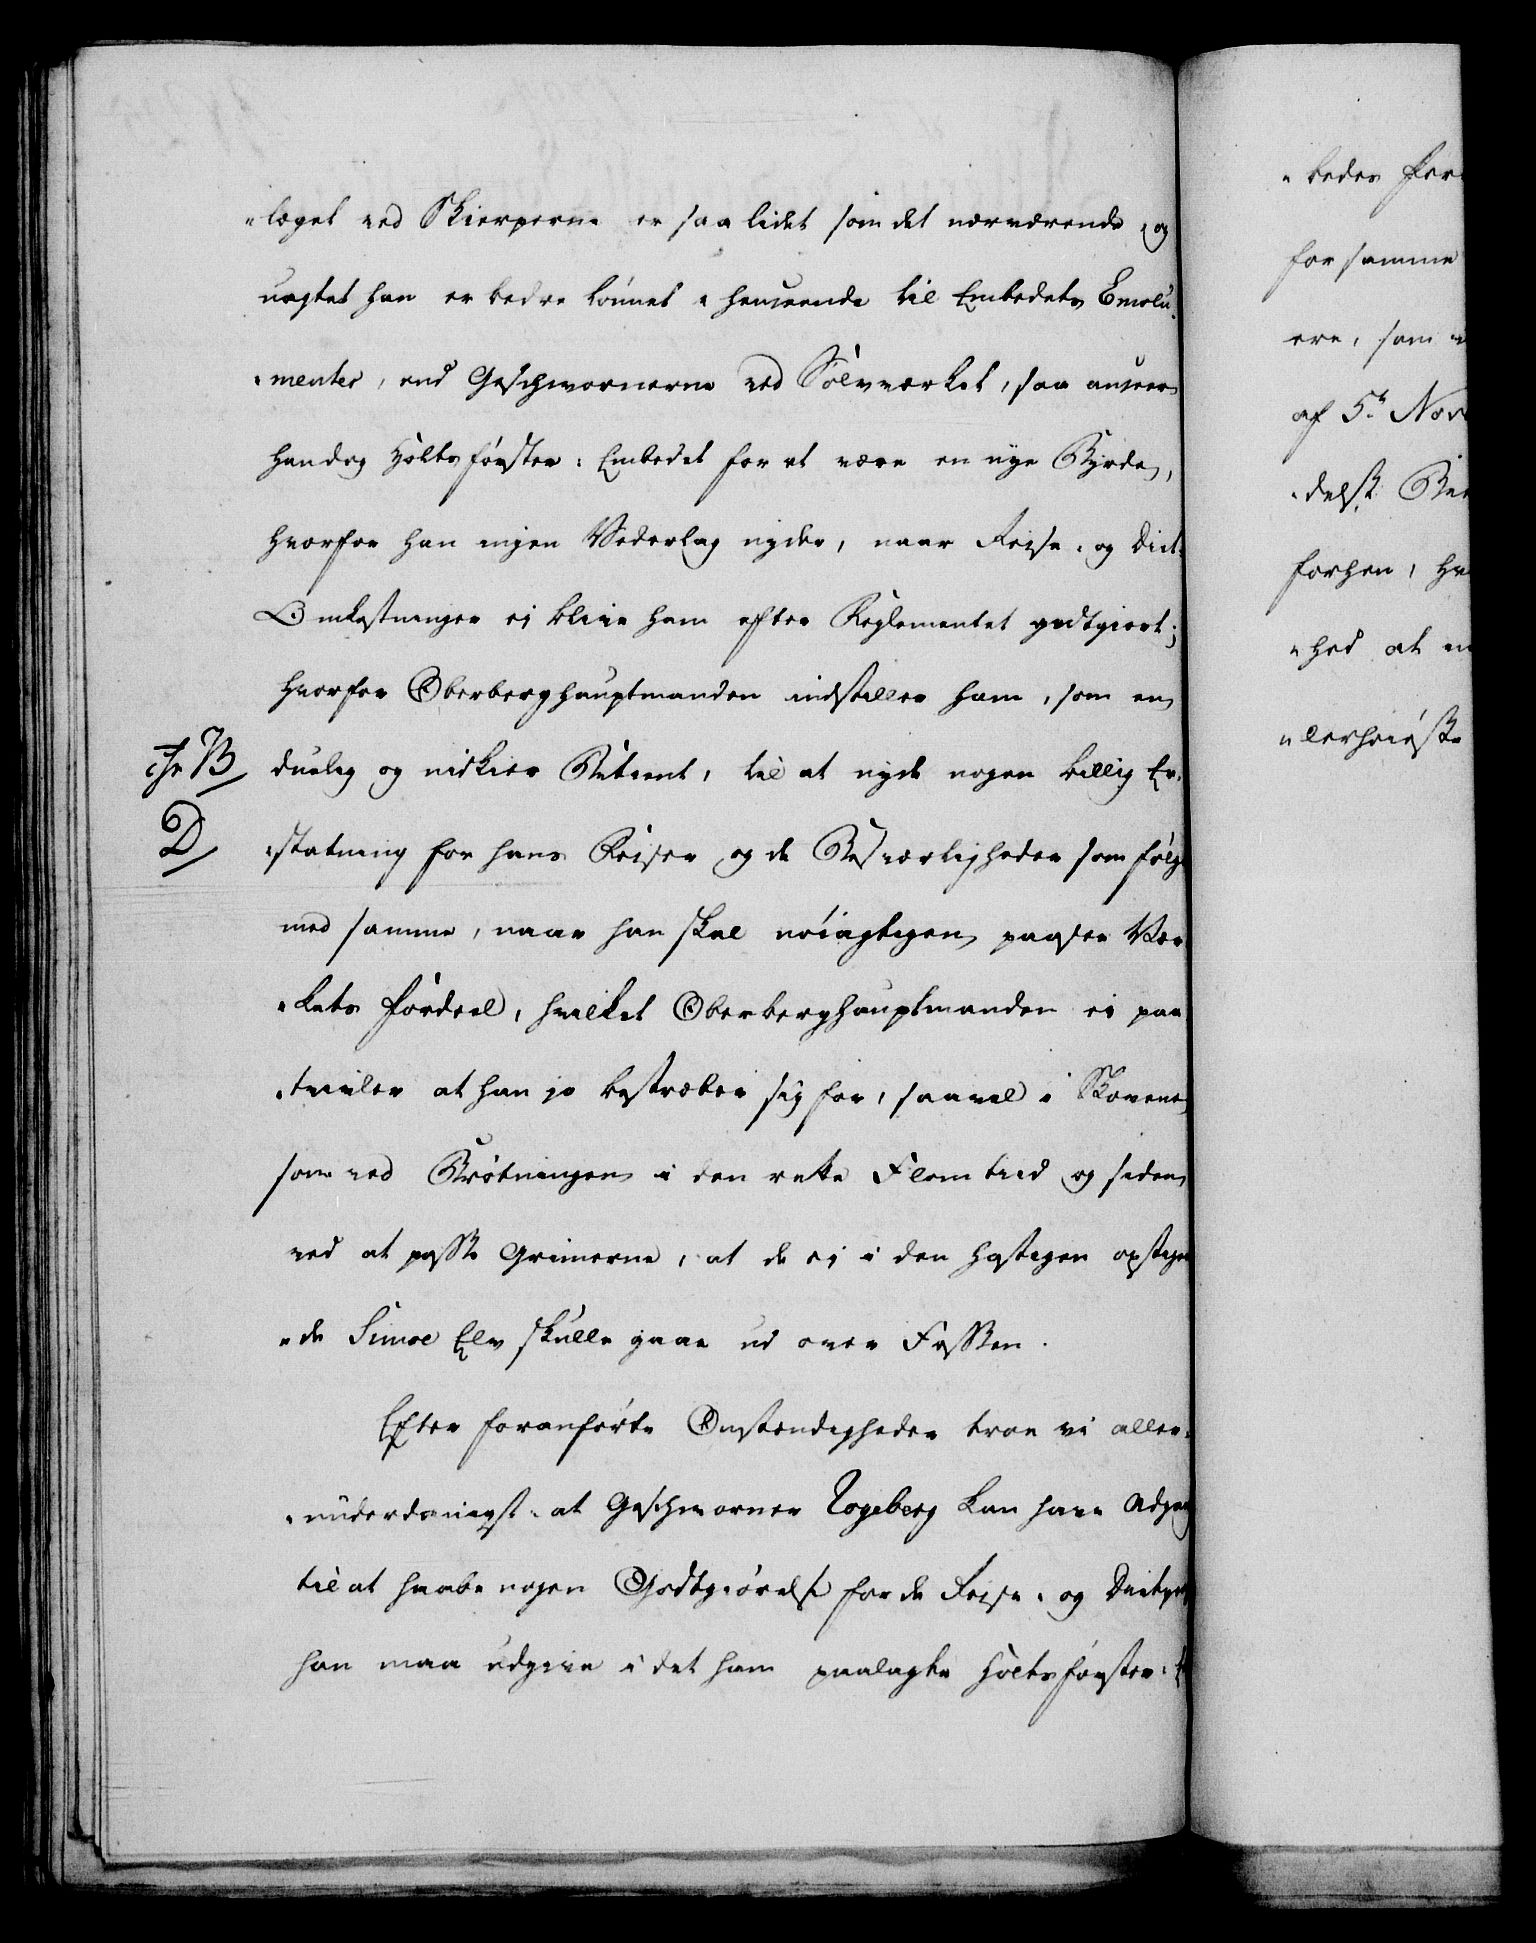 "laget ved Skierperne er saa lidet som det nærværende, og
uagtet han er bedre lønnet i henseende til Embedets Emolu-
"menter, end Geschwornerne ved Sølvværket, saa anseer
handog Holtsførster-Embedet for at være en nye Byrde,
hvorfor han ingen Vederlag nyder, naar Reise- og Diæt-
Omkostninger ej blive ham efter Reglementet godtgiort;
hvorfor Oberberghauptmanden indstiller ham, som en
duelig og nidkier Betient, til at nyde nogen billig Er-
"statning for hans Reiser og de Besværligheder som følge
med samme, naar han skal nøiagtigen paasee Vær-
"kets Fordeel, hvilket Oberberghauptmanden ei paa
"tvivler at han jo bestræber sig for, saavel i Skovene
som ved Brøtningen i den rette Flomtiid og siden
ved at passe Grimerne, at de ej i den hastigen opstigen
"de Simoe Elv skulle gaae ud over Fossen.
Efter foranførte Omstændigheder troe vi aller-
"underdanigst at Geschworner Rogeberg kan have Adgang
til at haabe nogen Godtgiørelse for de Reise- og
han maa udgive i det ham paalagte Holtsførster-
D
"bedes For
for samme
ere, som
af 5te Nov
"delse
forhen, hv
"hed at
"lerhøieste